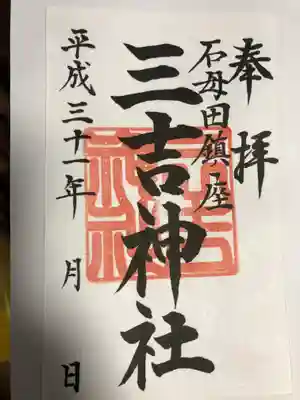 奉拝
石母田鎮座
三吉神社
平成三十一年 月 日